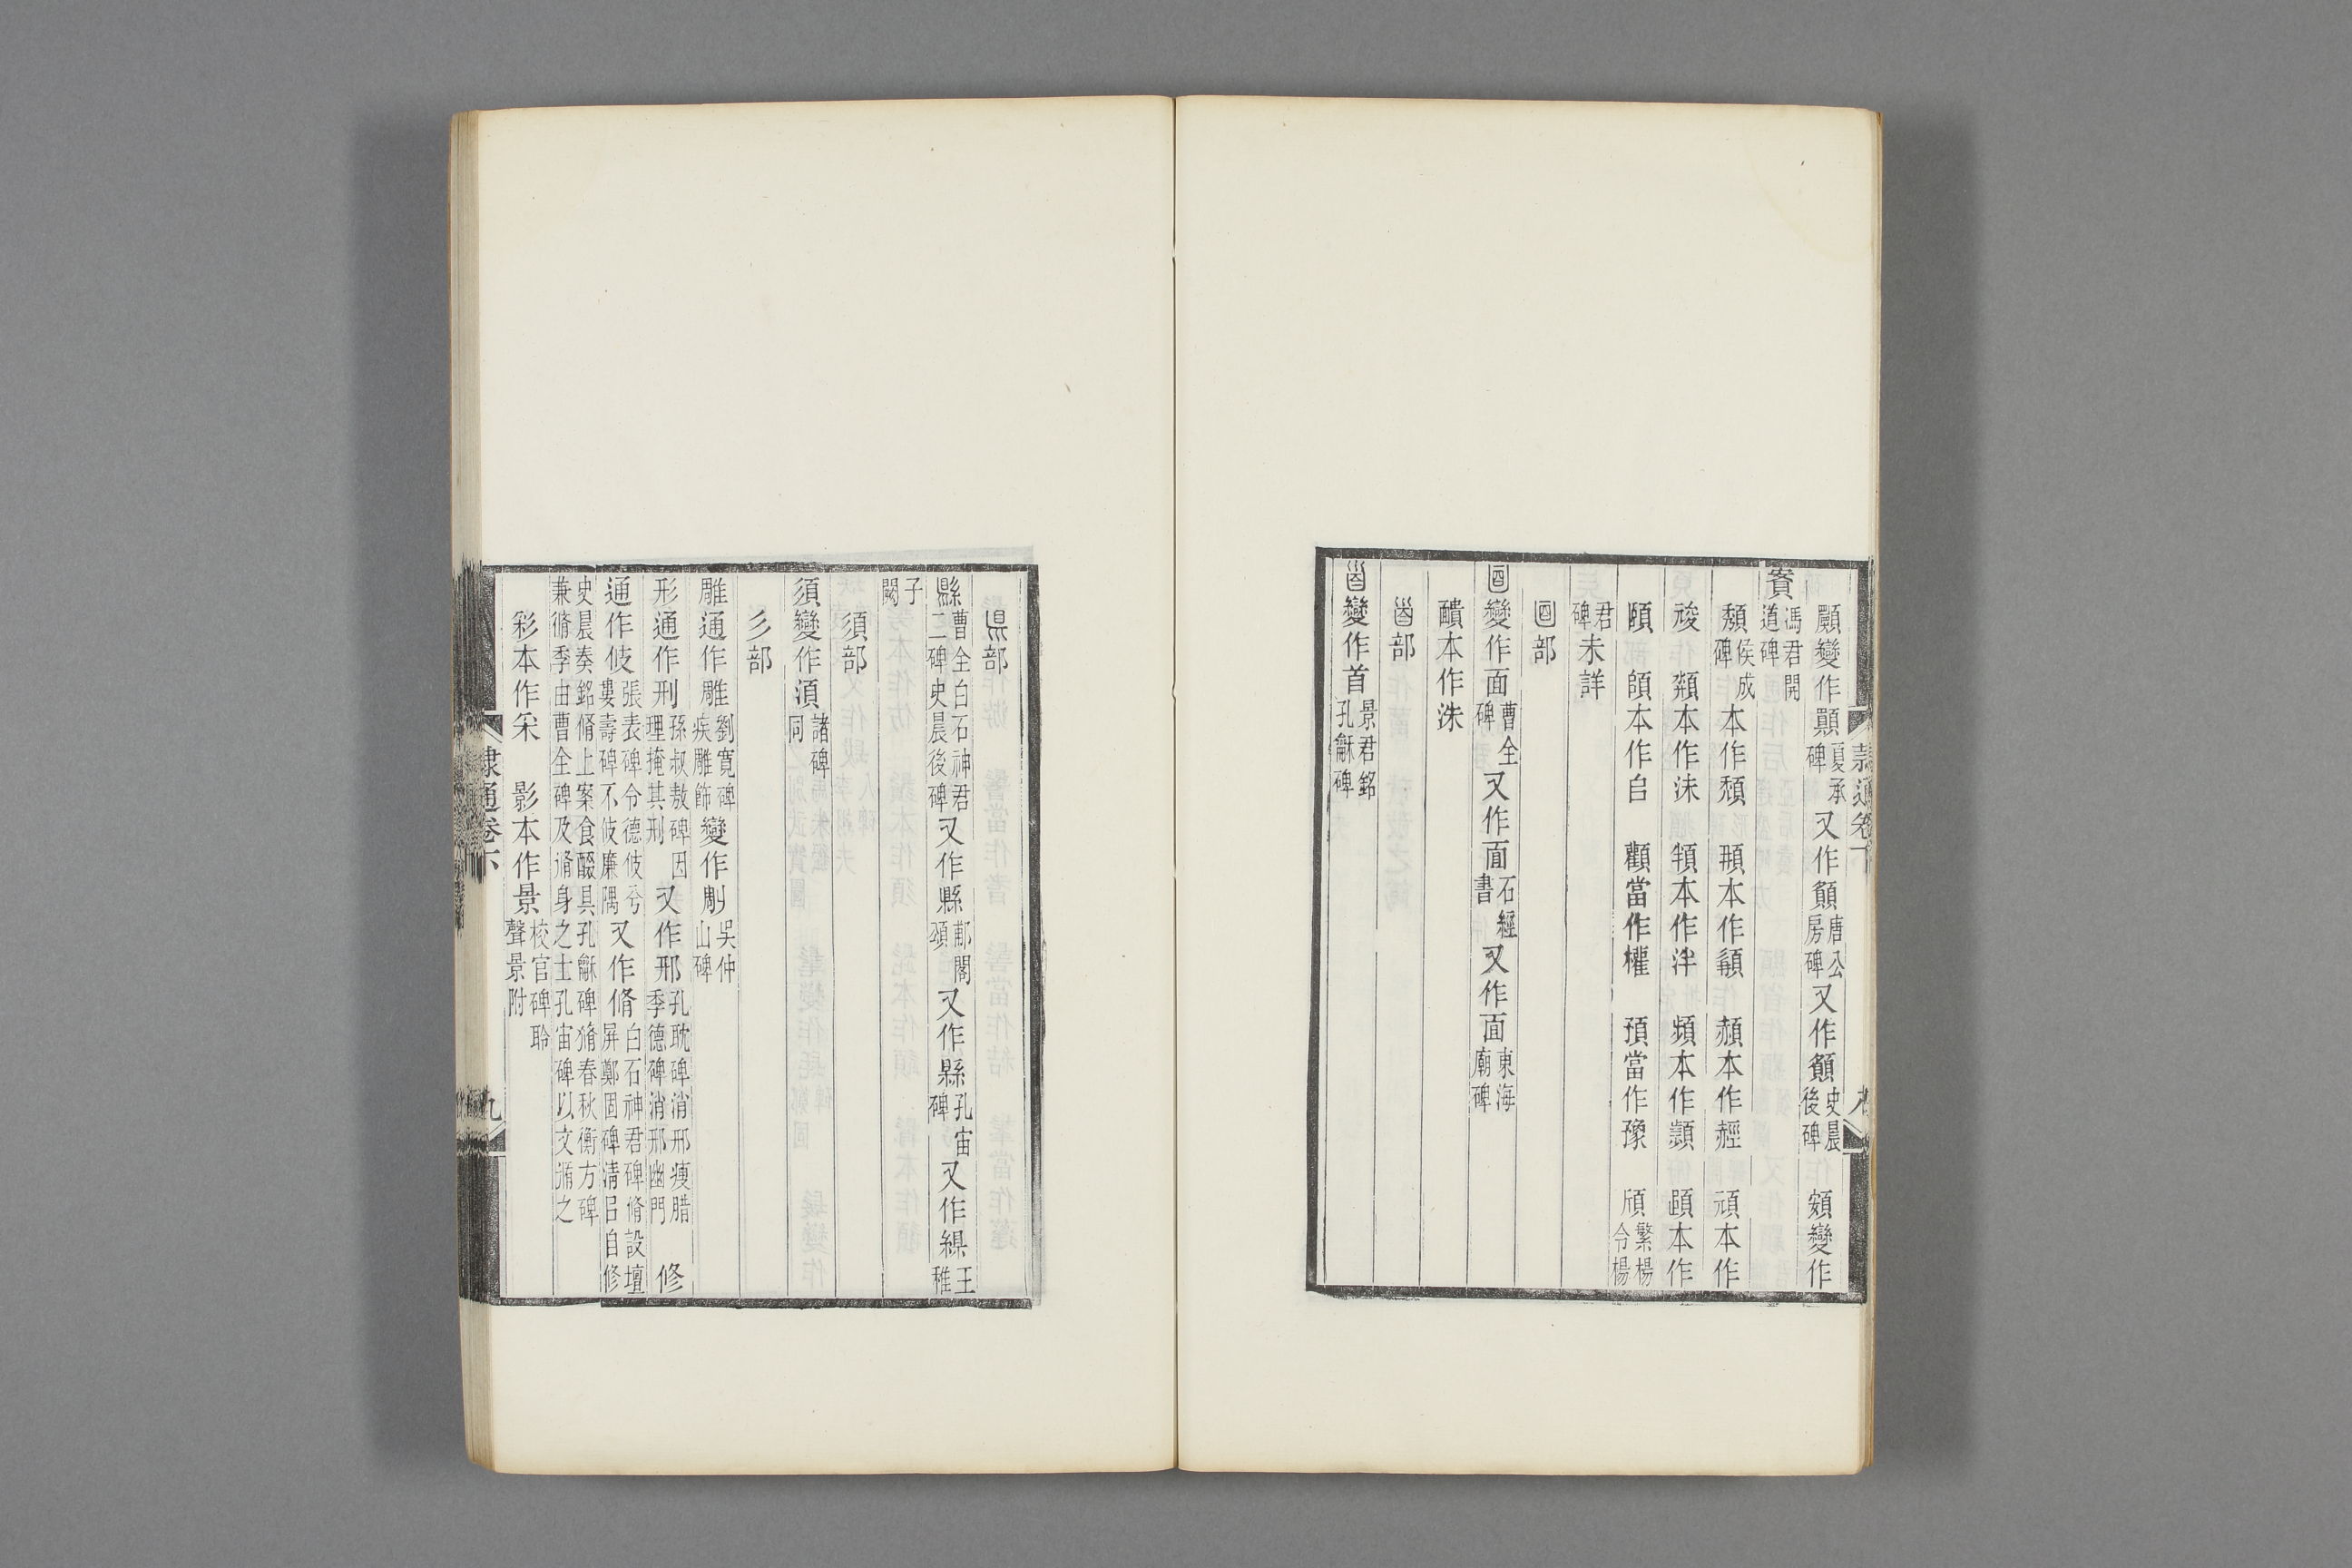 顚變作顛夏承碑又作顛唐公房碑又作顛史晨後碑 頞變作
賓馮君開道碑
頺侯成碑本作頹 頩本作 頳本作經 頑本作
竣 頮本作沬 頖本作泮 頻本作顰 本作
頤 頧本作自 顴當作權 預當作豫 頎繁楊令楊
君碑未詳
面部
面變作面曹全碑又作面石經書又作面東海廟碑
靧本作洙
首部
變作首景君銘孔龢碑
隸通卷下
県部
縣曹全白石神君二碑史晨後碑又作縣郙閣頌又作縣孔宙碑又作縣王稚
子闕
須部
須變作湏諸碑同
彡部
雕通作雕劉寬碑疾雕飾變作彫吳仲山碑
形通作刑孫叔敖碑因埋掩其刑又作邢孔耽碑消邢瘦腊季德碑消邢幽門 修
通作伎張表碑令德伎兮婁壽碑不伎廉隅又作脩白石神君碑脩設壇屏鄭固碑清㠯自修
史晨奏銘脩上案食醊具孔龢碑脩春秋衡方碑兼脩季由曹全碑及脩身之士孔宙碑以文脩之
彩本作采 影本作景校官碑聆聲景附
隸通卷下
九